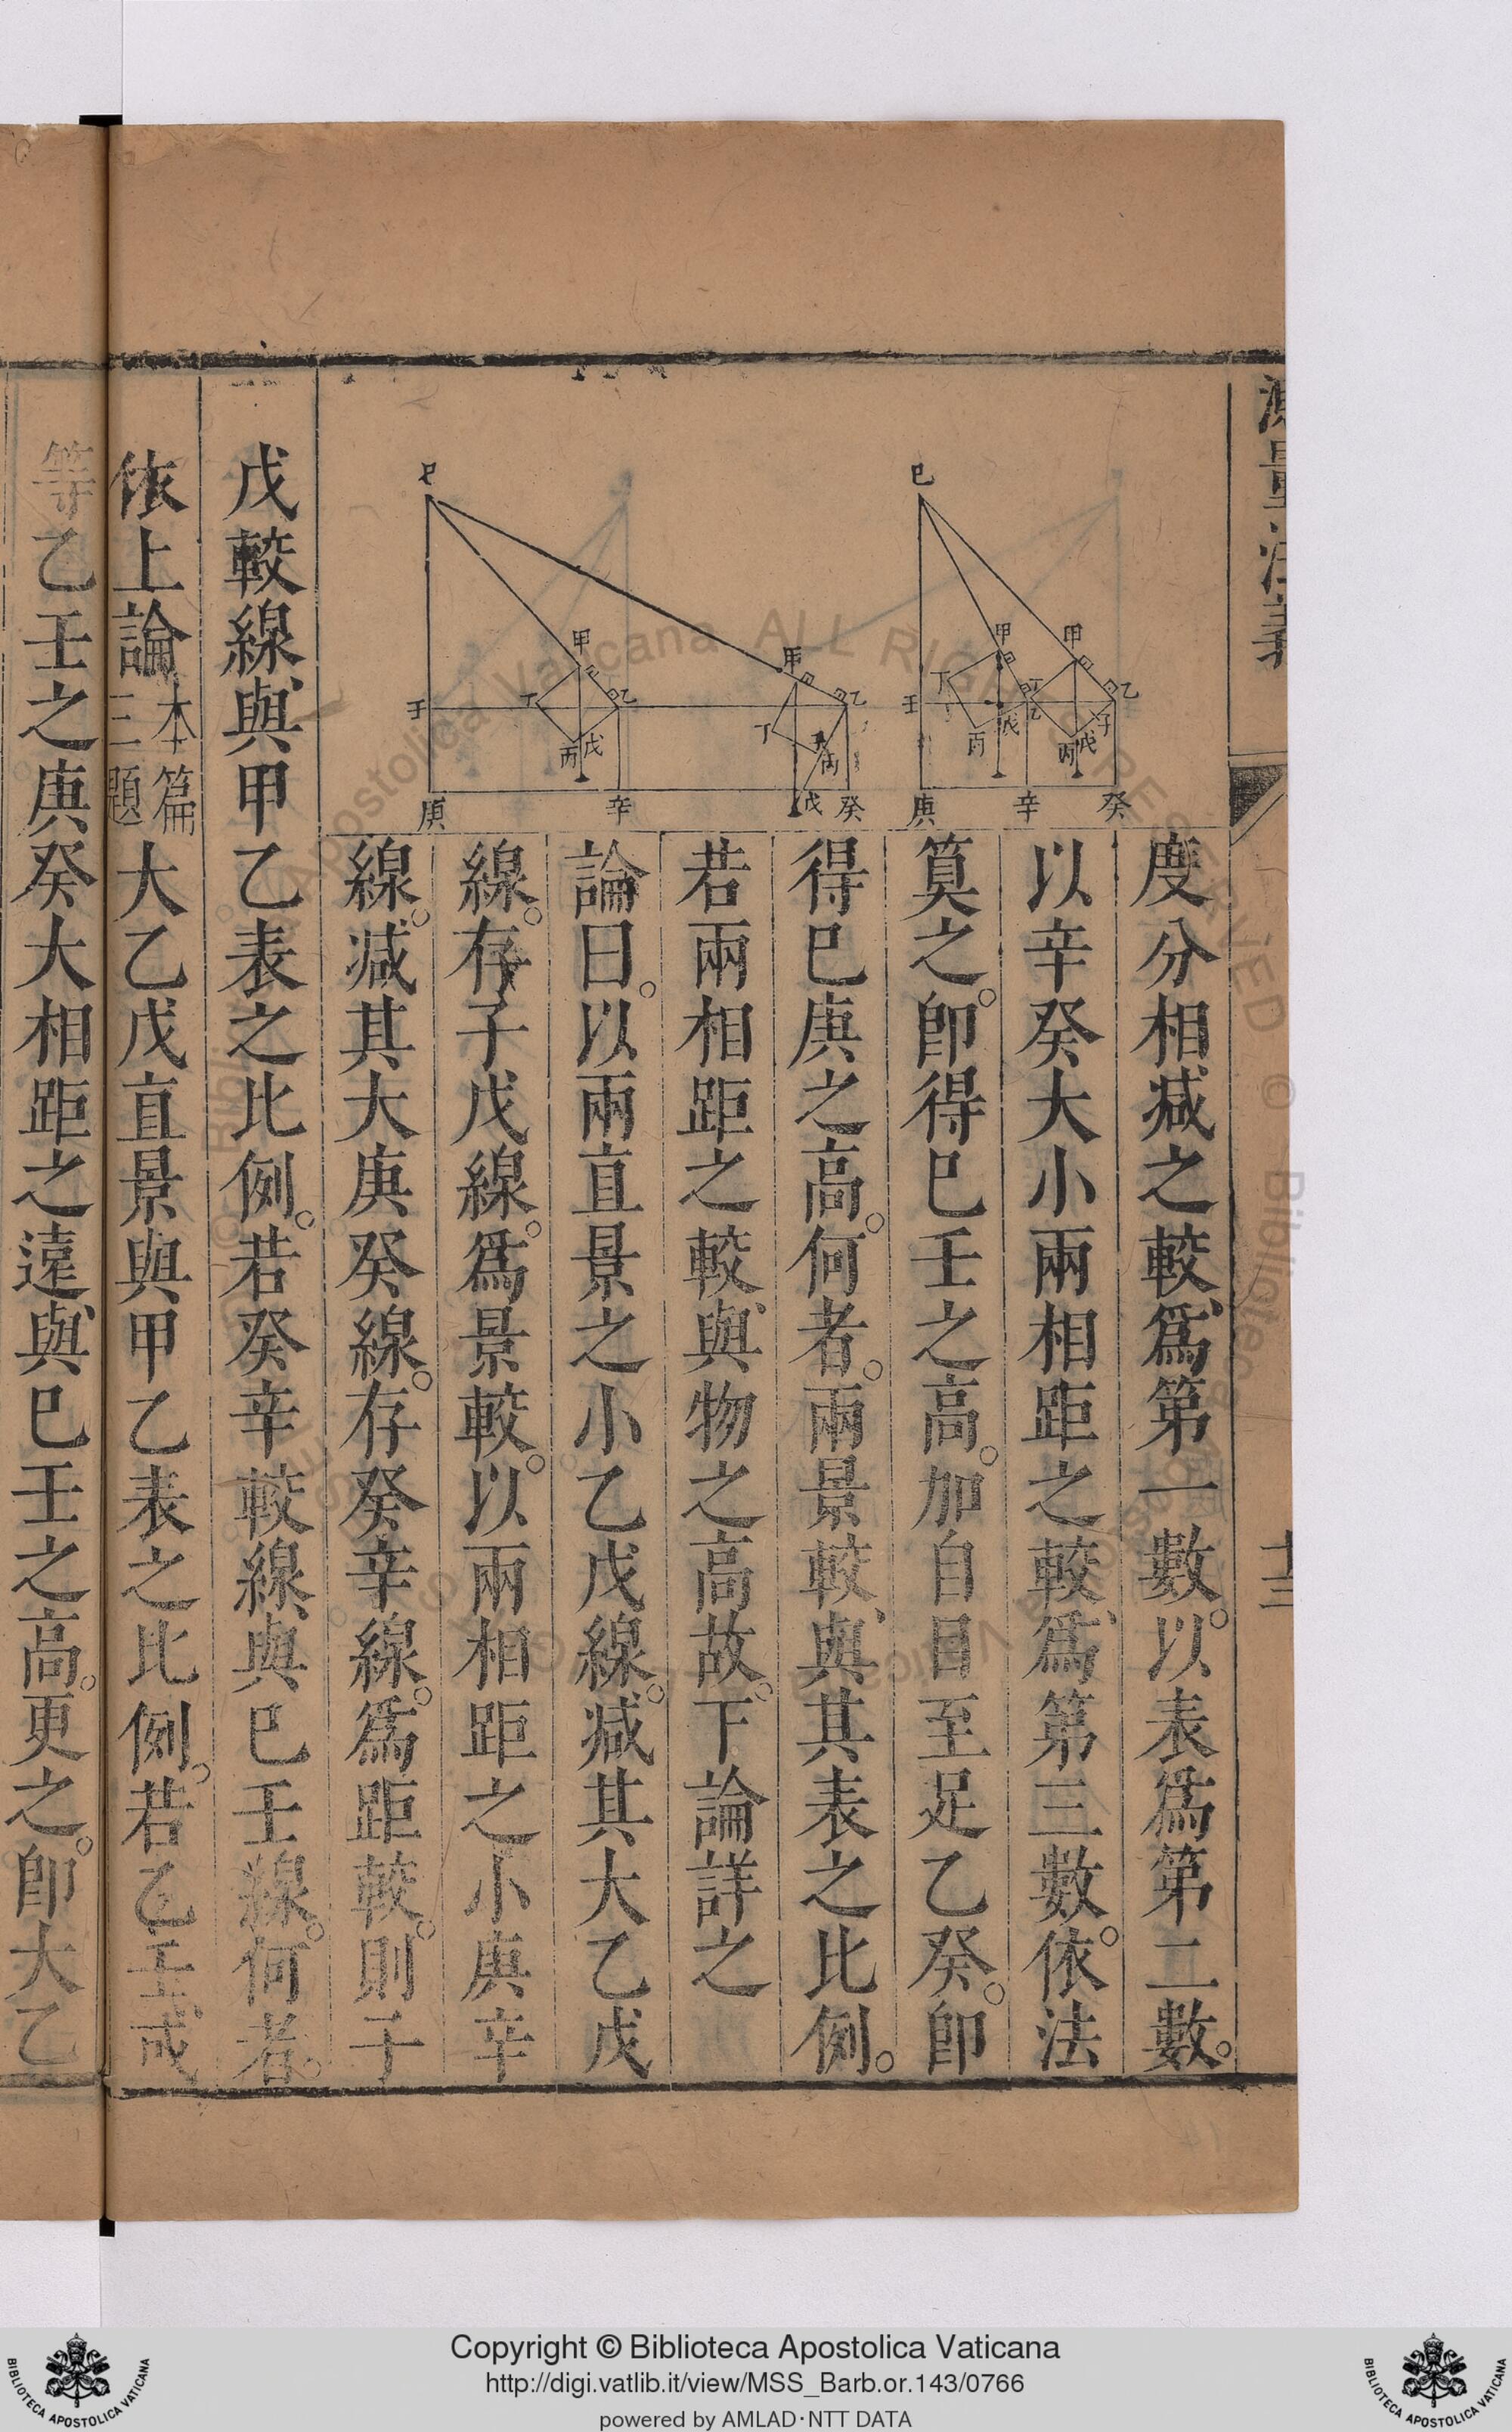 測量法義
十三
度分相减之較爲第一數以表爲第二數
以辛癸大小兩相距之較爲第三數依法
算之卽得巳壬之高加自目至足乙癸卽
得巳庚之高何者兩景較與其表之比例
若兩相距之較與物之高故下論詳之
論曰以兩直景之小乙戊線减其大乙戊
線存子戊線爲景較以兩相距之小庚辛
線减其大庚癸線存癸辛線爲距較則子
戊較線與甲乙表之比例若癸辛較線與巳壬線何者
依上論本篇三題大乙戊直景與甲乙表之比例若乙壬或
等乙壬之庚癸大相距之遠與巳壬之高更之卽大乙
巳 甲 甲 丁 丁 乙 乙 壬 戊 子 丙 丙 戊 庚 辛 癸
巳 甲 甲 丁 乙 乙 壬 丁 子 丙 戊 丙 庚 辛 戊 癸
© Biblioteca Apostolica Vaticana ALL RIGHTS RESERVED
BIBLIOTECA APOSTOLICA VATICANA
Copyright © Biblioteca Apostolica Vaticana
http://digi.vatlib.it/view/MSS_Barb.or.143/0766
powered by AMLAD·NTT DATA
BIBLIOTECA APOSTOLICA VATICANA